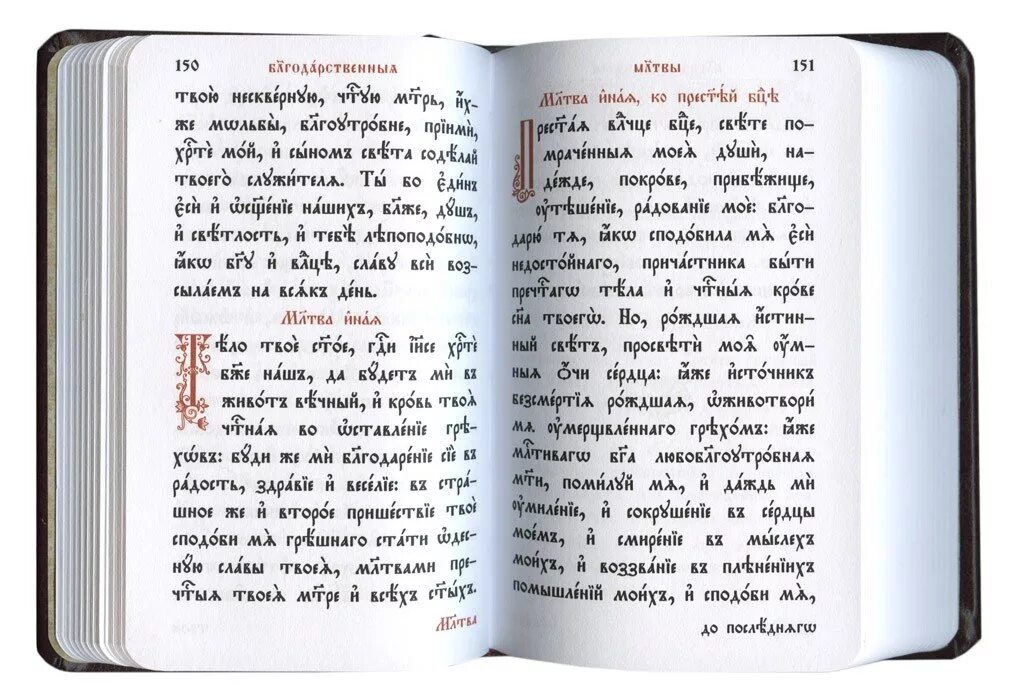 150 Бл҃года́рственныѧ
твою̀ нескве́рную, чⷭ҇тую мт҃рь, и҆́х-
же мѡльбы̀, бл҃гоꙋтро́бне, прїимѝ,
хрⷭ҇тѐ мо́й, и҆ сы́номъ свѣ́та содѣ́лай
твоего̀ служи́телѧ. Ты́ бо є҆ди́нъ
є҆сѝ и҆ ѡ҆сщ҃е́нїе на́шихъ, бл҃же, дꙋ́шъ,
и҆ свѣ́тлость, и҆ тебѣ̀ лѣпоподо́бнѡ,
ꙗ҆́кѡ бг҃ꙋ и҆ влⷣцѣ, сла́вꙋ всѝ воз-
сыла́емъ на всѧ́къ де́нь.
Мл҃тва и҆на́ѧ
Тѣ́ло твоѐ ст҃о́е, гдⷭ҇и і҆и҃се хрⷭ҇тѐ
бж҃е на́шъ, да бꙋ́детъ мѝ въ
живо́тъ вѣ́чный, и҆ кро́вь твоѧ̀
чⷭ҇тна́ѧ во ѡ҆ставле́нїе грѣ-
хѡ́въ: бꙋ́ди же мѝ бл҃годаре́нїе сїѐ въ
ра́дость, здра́вїе и҆ весе́лїе: въ стра́-
шное же и҆ второ́е прише́ствїе твоѐ
сподо́би мѧ̀ грѣ́шнаго ста́ти ѡ҆дес-
нꙋ́ю сла́вы твоеѧ̀, мл҃твами пре-
чⷭ҇тыѧ твоеѧ̀ мт҃ре и҆ всѣ́хъ ст҃ы́хъ.
Мл҃тва
мл҃твы 151
Мл҃тва и҆на́ѧ, ко прест҃ѣ́й бцⷣѣ
Прест҃а́ѧ влⷣчце бцⷣе, свѣ́те по-
мраче́нныѧ моеѧ̀ дꙋшѝ, на-
де́жде, покро́ве, прибѣ́жище,
ᲂу҆тѣше́нїе, ра́дованїе моѐ: бл҃го-
дарю́ тѧ, ꙗ҆́кѡ сподо́била мѧ̀ є҆сѝ
недосто́йнаго, прича́стника бы́ти
пречⷭ҇тагѡ тѣ́ла и҆ чⷭ҇тны́ѧ кро́ве
сн҃а твоегѡ̀. Но, ро́ждшаѧ и҆́стин-
ный свѣ́тъ, просвѣтѝ моѧ̑ ᲂу҆́м-
ныѧ ѻ҆́чи се́рдца: ꙗ҆́же и҆сто́чник
безсме́ртїѧ ро́ждшаѧ, ѡ҆животворѝ
мѧ ᲂу҆мерщвле́ннаго грѣхо́мъ: ꙗ҆́же
млⷭ҇тивагѡ бг҃а любобл҃гоꙋтро́бнаѧ
мт҃и, поми́лꙋй мѧ̀, и҆ да́ждь мѝ
ᲂу҆миле́нїе, и҆ сокрꙋше́нїе въ се́рдцы
мое́мъ, и҆ смире́нїе въ мы́слех
мои́хъ, и҆ воззва́нїе въ плѣне́нїихъ
помышле́нїй мои́хъ, и҆ сподо́би мѧ̀,
до послѣ́днѧгѡ